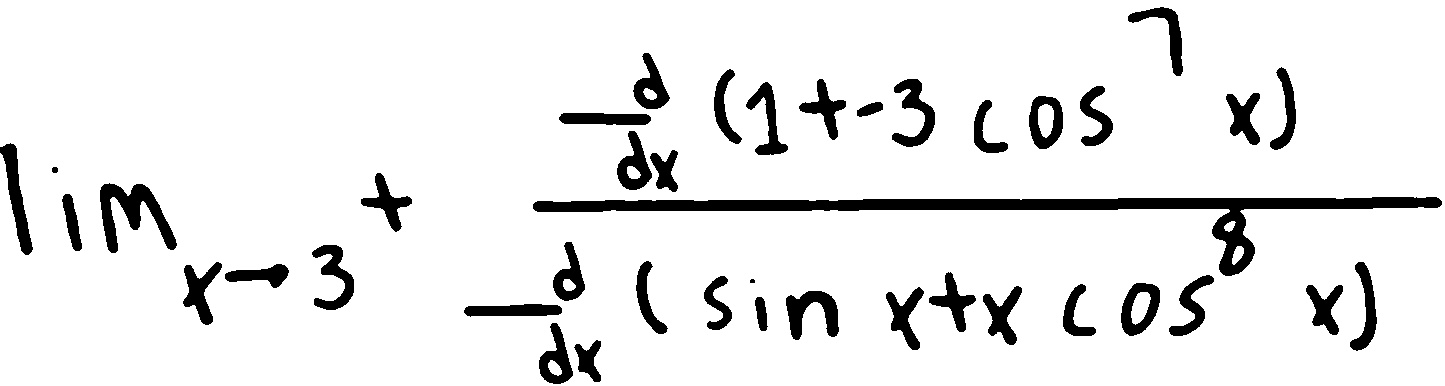 \lim_{x \to 3^+} \frac{\frac{d}{dx}(1+-3\cos^7 x)}{\frac{d}{dx}(\sin x+x\cos^8 x)}